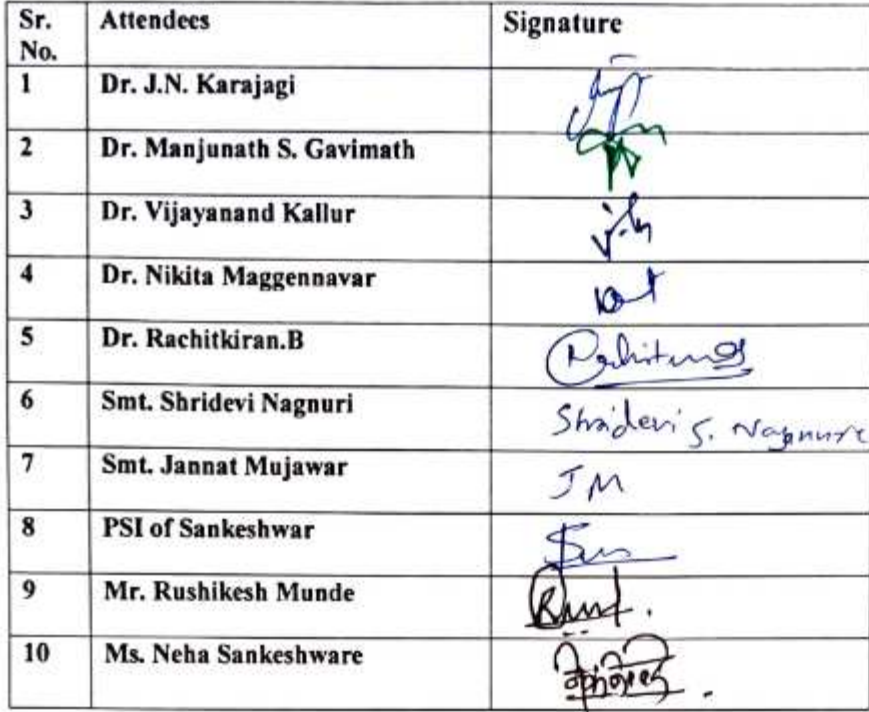 Sr. No. Attendees Signature
1 Dr. J.N. Karajagi
2 Dr. Manjunath S. Gavimath
3 Dr. Vijayanand Kallur
4 Dr. Nikita Maggennavar
5 Dr. Rachitkiran.B
6 Smt. Shridevi Nagnuri Shridevi S. Nagnure
7 Smt. Jannat Mujawar JM
8 PSI of Sankeshwar
9 Mr. Rushikesh Munde
10 Ms. Neha Sankeshware